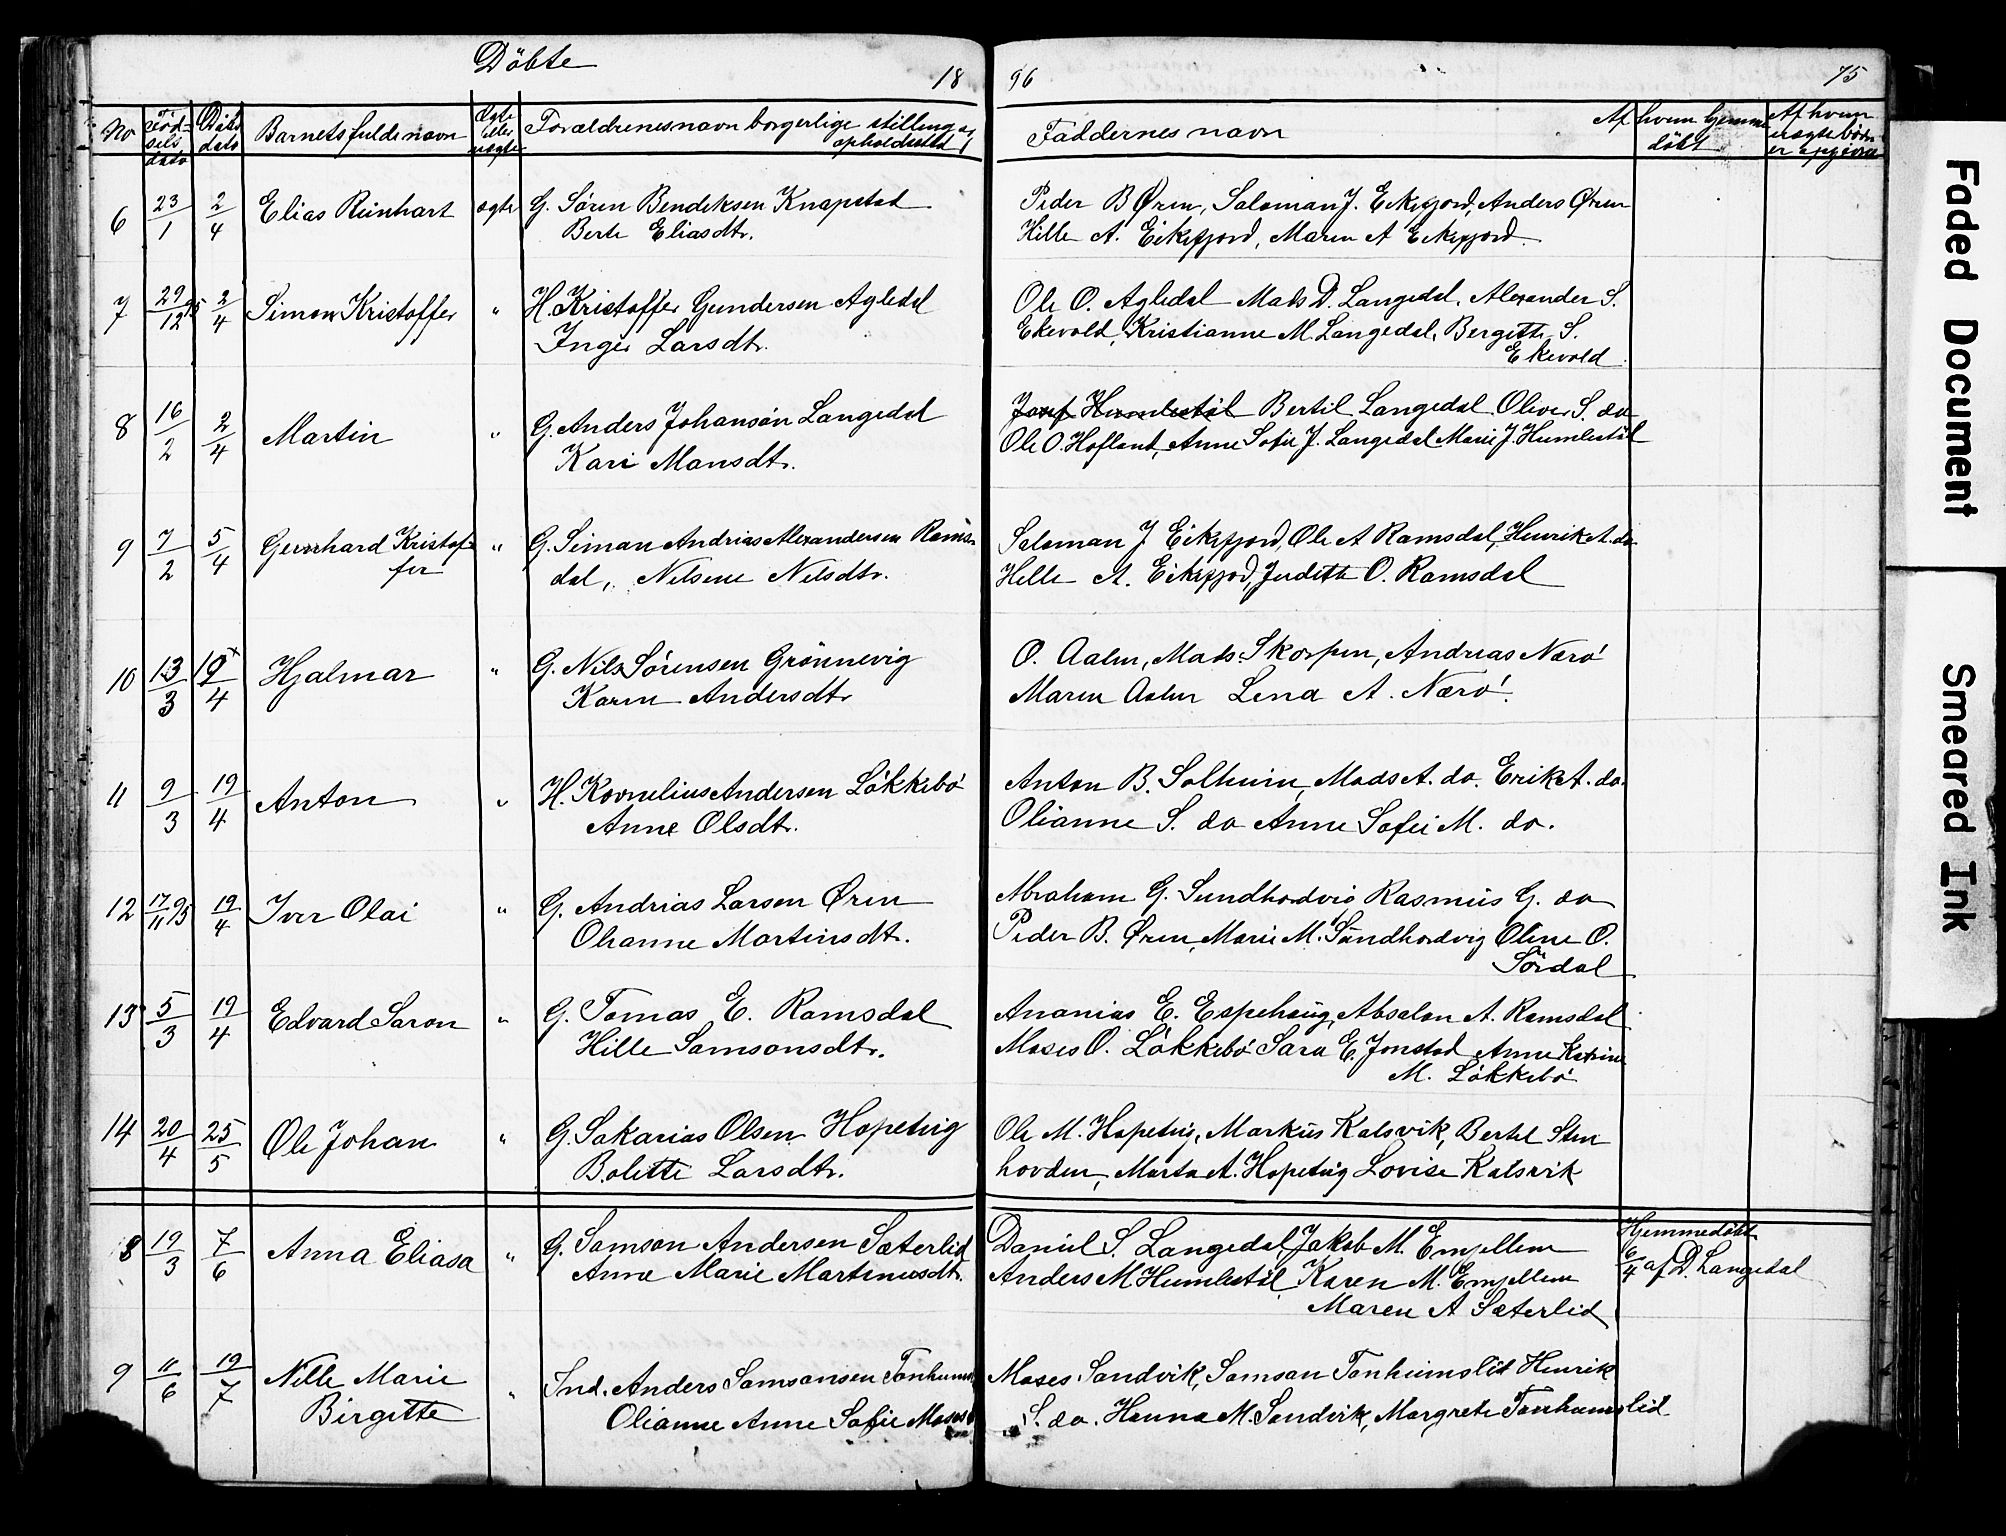 Döbte
18 96 75
No Födselsdato Döbtdato Barnets fulde navn Ægte eller uægte Forældrenes navn borgerlige stilling og opholdssted Faddernes navn Af hvem hjemmedöbt Af hvem uægte börn er opgivne
6 23/1 2/4 Elias Reinhart ægte G. Sören Bendiksen Knapstad Peder B Øren, Salaman J. Eikefjord, Anders Øren
Berte Eliasdtr. Hille A. Eikefjord, Maren A Eikefjord.
7 29/12 95 2/4 Simon Kristoffer " H. Kristoffer Gundersen Agledal Ole O. Agledal Mads D. Langedal, Alexander S.
Inger Larsdtr. Ekevold, Kristianne M. Langedal, Bergitte S.
Ekevold
8 16/2 2/4 Martin " G. Anders Johansön Langedal Josef Humlestöl Bertil Langedal Oliver S. do
Kari Monsdtr. Ole O. Hofland, Anne Sofie J. Langedal Marie J. Humlestöl
9 7/2 5/4 Gerhard Kristoffer " G. Siman Andrias Alexandersen Rams-
dal, Nilsine Nilsdtr. Salaman J Eikefjord, Ole A Ramsdal, Henrik A. do
Helle A. Eikefjord, Judith O. Ramsdal
10 13/3 19/4 Hjalmar " G. Nils Sörensen Grönnevig O. Aalen, Mads Skorpen, Andreas Nærö
Karen Andersdtr Maren Aalen Lena A. Nærö.
11 9/3 19/4 Anton " H. Kornelius Andersen Lökkebö Anton B. Solheim, Mads A. do. Erik A. do.
Anne Olsdtr. Olianne S. do Anne Sofie M. do.
12 17/11 95 19/4 Iver Olai " G. Andrias Larsen Øren Abraham G. Sundhordvig Rasmus G. do
Ohanne Martinsdtr. Peder B. Øren, Marie M. Sundhordvig Oline O.
Sördal
13 5/3 19/4 Edvard Saron " G. Tomas E. Ramsdal Ananias E. Espehaug, Absalon A. Ramsdal
Hille Samsonsdtr. Moses O. Lökkebö Sara E. Jonstad Anne Katrine
M. Lökkebö
14 20/4 25/5 Ole Johan " G. Sakarias Olsen Hopetug Ole M. Hopetug, Markus Kalsvik, Bertel Sten
Bolette Larsdtr. hovden, Marta A. Hopetug Lovise Kalsvik
8 19/3 7/6 Anna Eliasa " G. Samson Andersen Sæterlid Daniel S. Langedal, Jakob M. Emjellem Hjemmedöbt
Anne Marie Martinusdtr. Anders M Humlestöl Karen M. Emjellem 6/4 af D. Langedal
Maren A Sæterlid
9 11/6 19/7 Nille Marie " Ind. Anders Samsonsen Tonheims Moses Sandvik, Samson Tonheimslid Henrik
Birgitte Olianne Anne Sofie Moses S. do. Hanna M. Sandvik, Margrete Tonheimslid
Faded Document
Smeared Ink